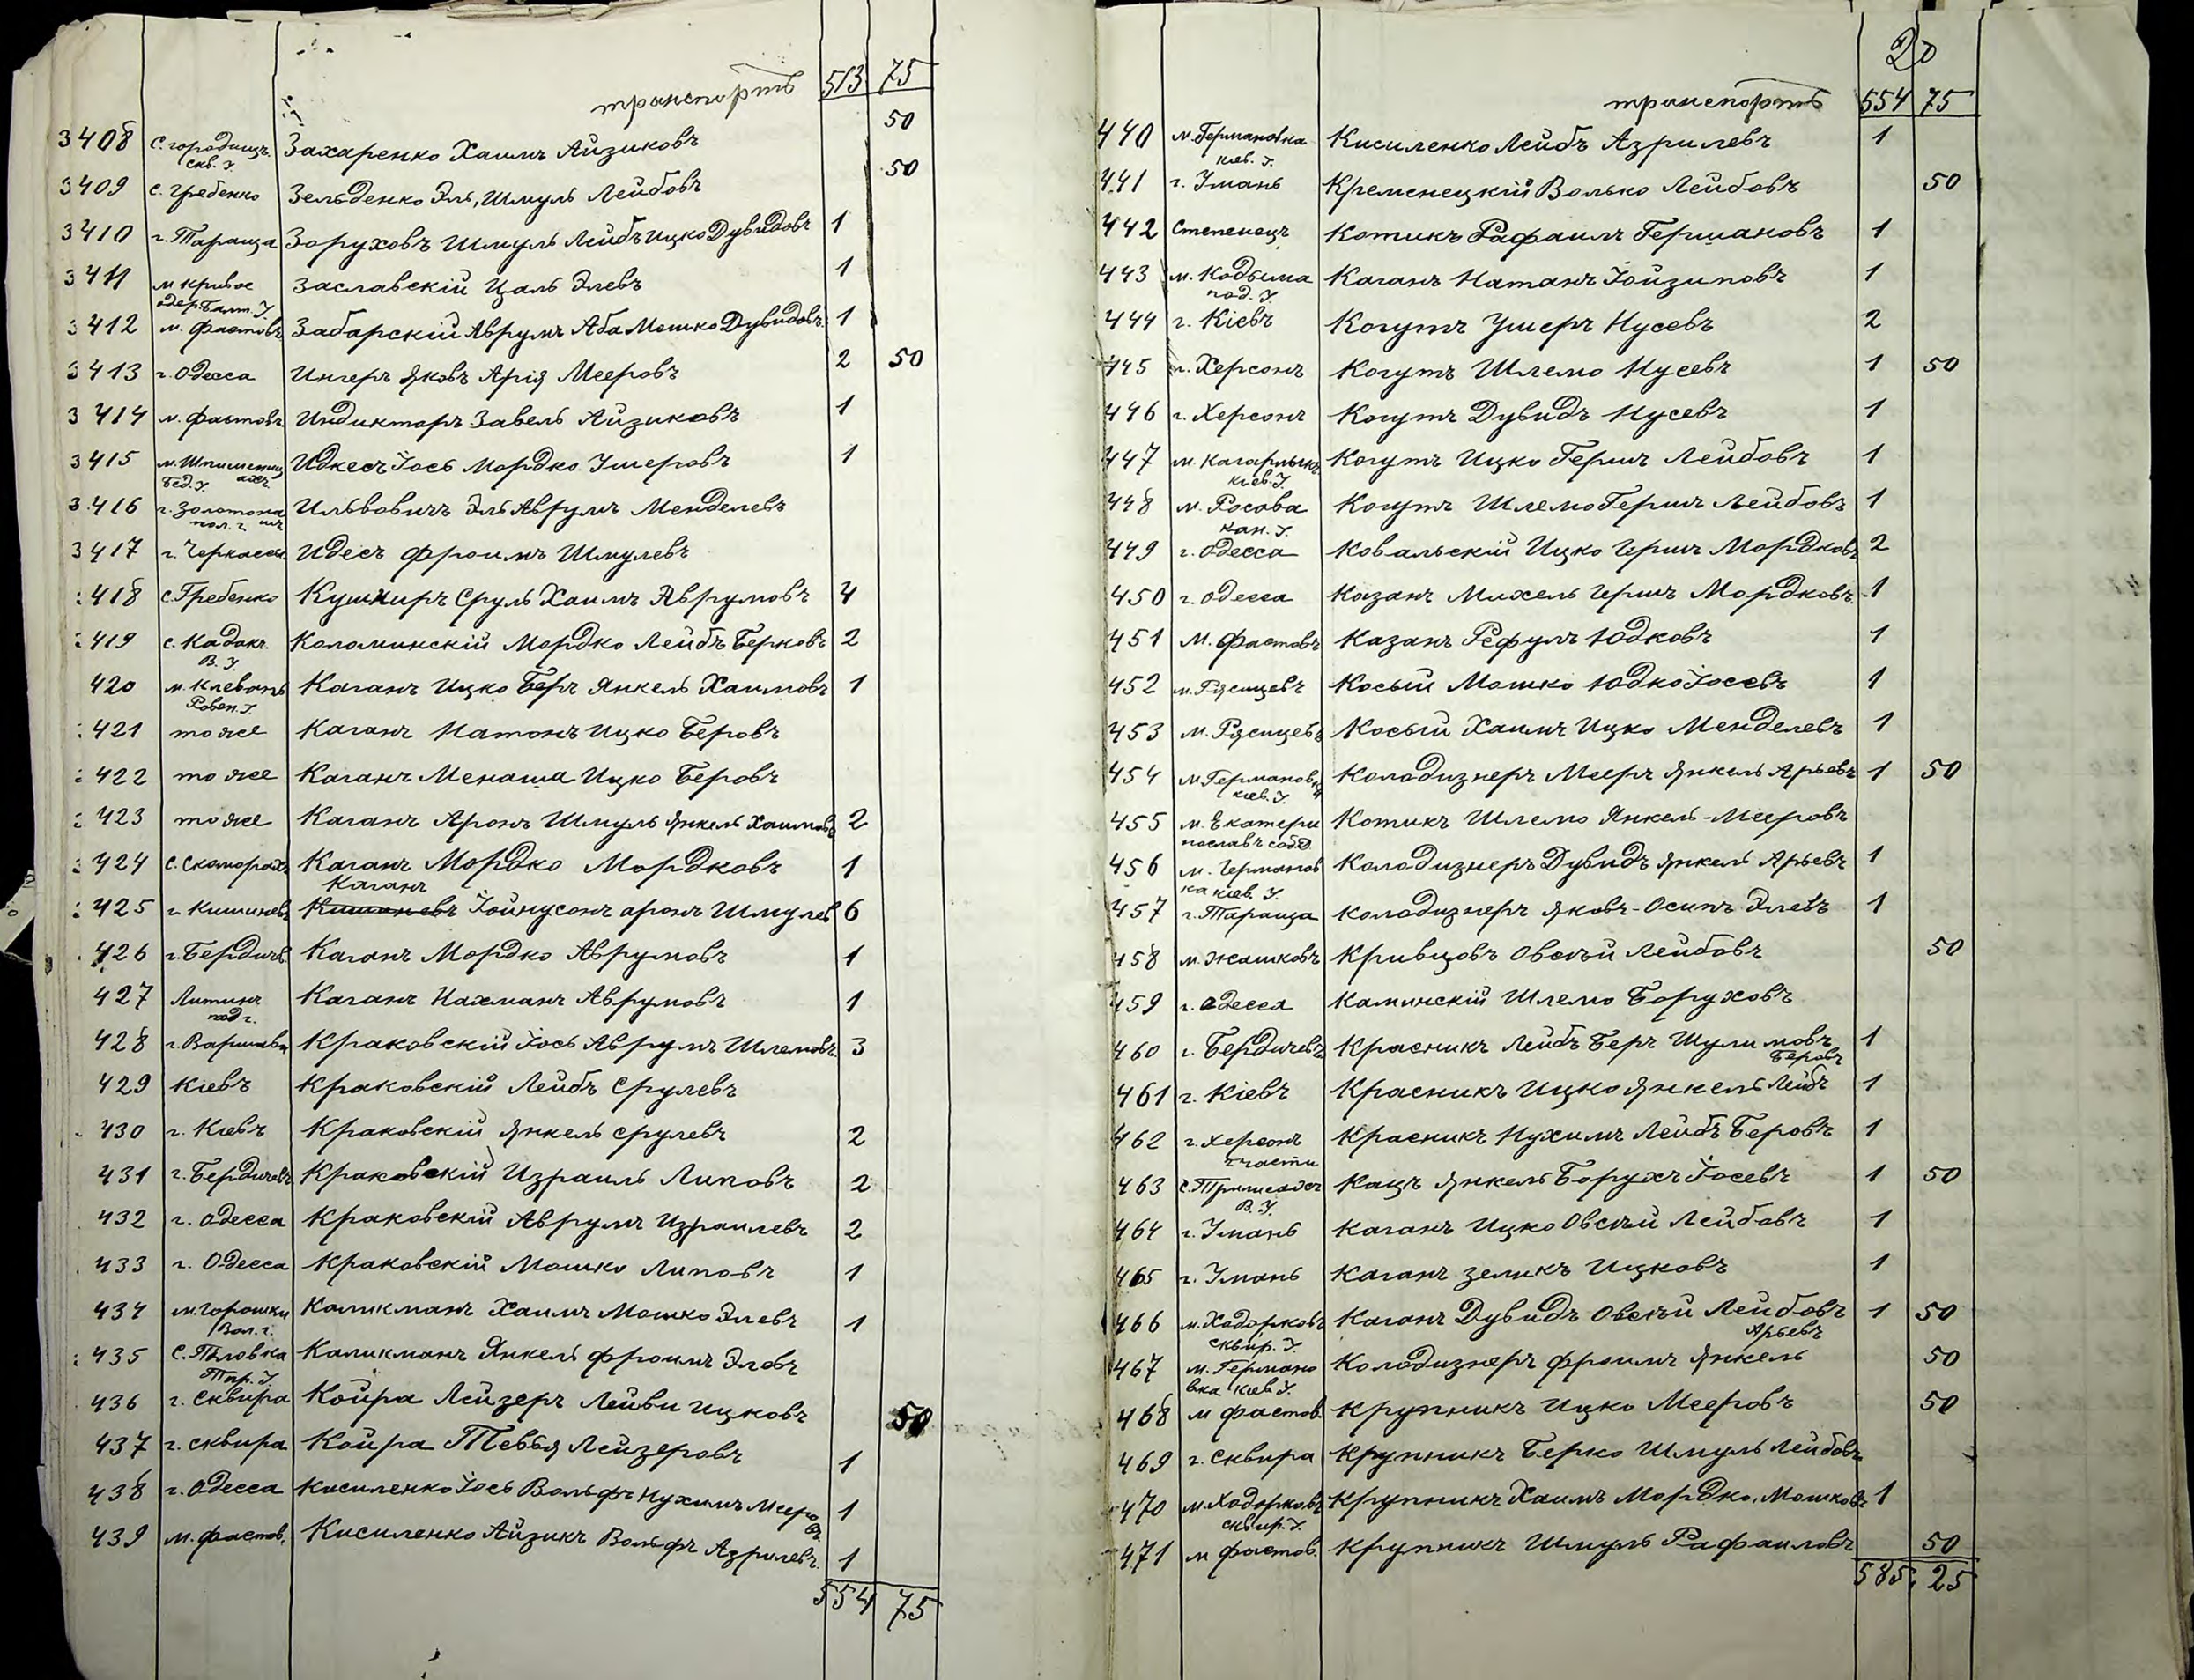 транспортъ 513 75
3408 с. городищъ Захаренко Хаимъ Айзиковъ 50
скв. У.
3409 с. Гребенко Зельденко Эль, Шмуль Лейбовъ 50
3410 г. Тараща Заруховъ Шмуль Лейбъ Ицко Дувидовъ 1
3411 м Кривое Заславскій Цаль Элевъ 1
одер. Балт. У.
3412 м. Фастовъ Забарскій Аврумъ Аба Мошко Дувидовъ 1
3413 г. Одесса Ингеръ Яковъ Арія Мееровъ 2 50
3414 м. Фастовъ Индикторъ Завель Айзиковъ 1
3415 м. Идкесъ Іось Мордко Умеровъ 1
3.416 г. Золотоно Ильвовичъ Эль Аврумъ Менделевъ
пол. г. шъ
3417 г. Черкассы Идесъ Фроимъ Шмулевъ
418 с. Гребенко Кушниръ Сруль Хаимъ Аврумовъ 4
419 с. Кадакъ Коломинскій Мордко Лейбъ Берковъ 2
В. У.
420 м. Клевань Каганъ Ицко Беръ Янкель Хаимовъ 1
Ровен. У.
421 тоже Каганъ Натонъ Ицко Беровъ
422 тоже Каганъ Менаша Ицко Беровъ
423 тоже Каганъ Аронъ Шмуль Янкель Хаимовъ 2
424 с. Скоморохъ Каганъ Мордко Мордковъ 1
Каганъ
425 г. Кишиневъ Кишиневъ Іойнусонъ аронъ Шмулев 6
426 г. Бердичъ Каганъ Мордко Аврумовъ 1
427 Литинъ Каганъ Нахманъ Аврумовъ 1
под г.
428 г. Варшава Краковскій Іось Аврумъ Шлемовъ 3
429 Кіевъ Краковскій Лейбъ Срулевъ
430 г. Кіевъ Краковскій Янкель Срулевъ 2
431 г. Бердичевъ Краковскій Израиль Липовъ 2
432 г. Одесса Краковскій Аврумъ Израилевъ 2
433 г. Одесса Краковскій Мошко Липовъ 1
434 м. Горошки Каликманъ Хаимъ Мошко Элевъ 1
Вол. г.
435 С. Каликманъ Янкель Фроимъ Элевъ
Тар. У.
436 г. Сквира Койра Лейзеръ Лейви Ицковъ 50
437 г. Сквира Койра Тевья Лейзеровъ 1
438 г. Одесса Кисиленко Іось Вольфъ Нухимъ Мееро 1
въ
439 м. Фастов. Кисиленко Айзикъ Вольфъ Азрилевъ. 1
554 75
20
транспортъ 554 75
440 м. Германовка Кисиленко Лейбъ Азрилевъ 1
кіев. У.
441 г. Умань Кременецкій Волько Лейбовъ 50
442 Степенецъ Котикъ Рафаилъ Германовъ 1
443 м. Кодыма Каганъ Натанъ Іойзиповъ 1
под. У.
444 г. Кіевъ Когутъ Умеръ Нусевъ 2
445 г. Херсонъ Когутъ Шлемо Нусевъ 1 50
446 г. Херсонъ Когутъ Дувидъ Нусевъ 1
447 м. Кагарлыкъ Когутъ Ицко Гершъ Лейбовъ 1
кіев. У.
448 м. Росава Когутъ Шлемо Гершъ Лейбовъ 1
кан. У.
449 г. Одесса Ковальскій Ицко Гершъ Мордковъ 2
450 г. Одесса Казанъ Михель Гершъ Мордковъ. 1
451 м. Фастовъ Казанъ Рефулъ Юдковъ 1
452 м. Ржищевъ Косый Мошко Юдко Іосевъ 1
453 м. Ржищевъ Косый Хаимъ Ицко Менделевъ 1
454 м. Германовка Колодизнеръ Мееръ Янкель Арьевъ 1 50
кіев. У.
455 м. Екатери Котикъ Шлемо Янкель-Мееровъ
нославъ
456 м. Германов Колодизнеръ Дувидъ Янкель Арьевъ 1
ка кіев. У.
457 г. Тараща Колодизнеръ Яковъ-Осипъ Элевъ 1
458 м. Жашковъ Кривцовъ Овсѣй Лейбовъ 50
459 г. Одесса Каминскій Шлемо Боруховъ
460 г. Бердичевъ Красникъ Лейбъ Беръ Шулимовъ 1
Беровъ
461 г. Кіевъ Красникъ Ицко Янкель Лейбъ 1
462 г. Херсонъ Красникъ Нухимъ Лейбъ Беровъ 1
2 части
463 Кацъ Янкель Борухъ Іосевъ 1 50
В. У.
464 г. Умань Каганъ Ицко Овсѣй Лейбовъ 1
465 г. Умань Каганъ Зеликъ Ицковъ 1
466 м. Ходорковъ Каганъ Дувидъ Овсѣй Лейбовъ 1 50
сквир. У. Арьевъ
467 м. Германо Колодизнеръ Фроимъ Янкель 50
вка кіев У.
468 м Фастов. Крупникъ Ицко Мееровъ 50
469 г. Сквира Крупникъ Берко Шмуль Лейбовъ
470 м. Ходорковъ Крупникъ Хаимъ Мордко, Мошковъ 1
сквир. У.
471 м Фастов. Крупникъ Шмуль Рафаиловъ 50
585. 25